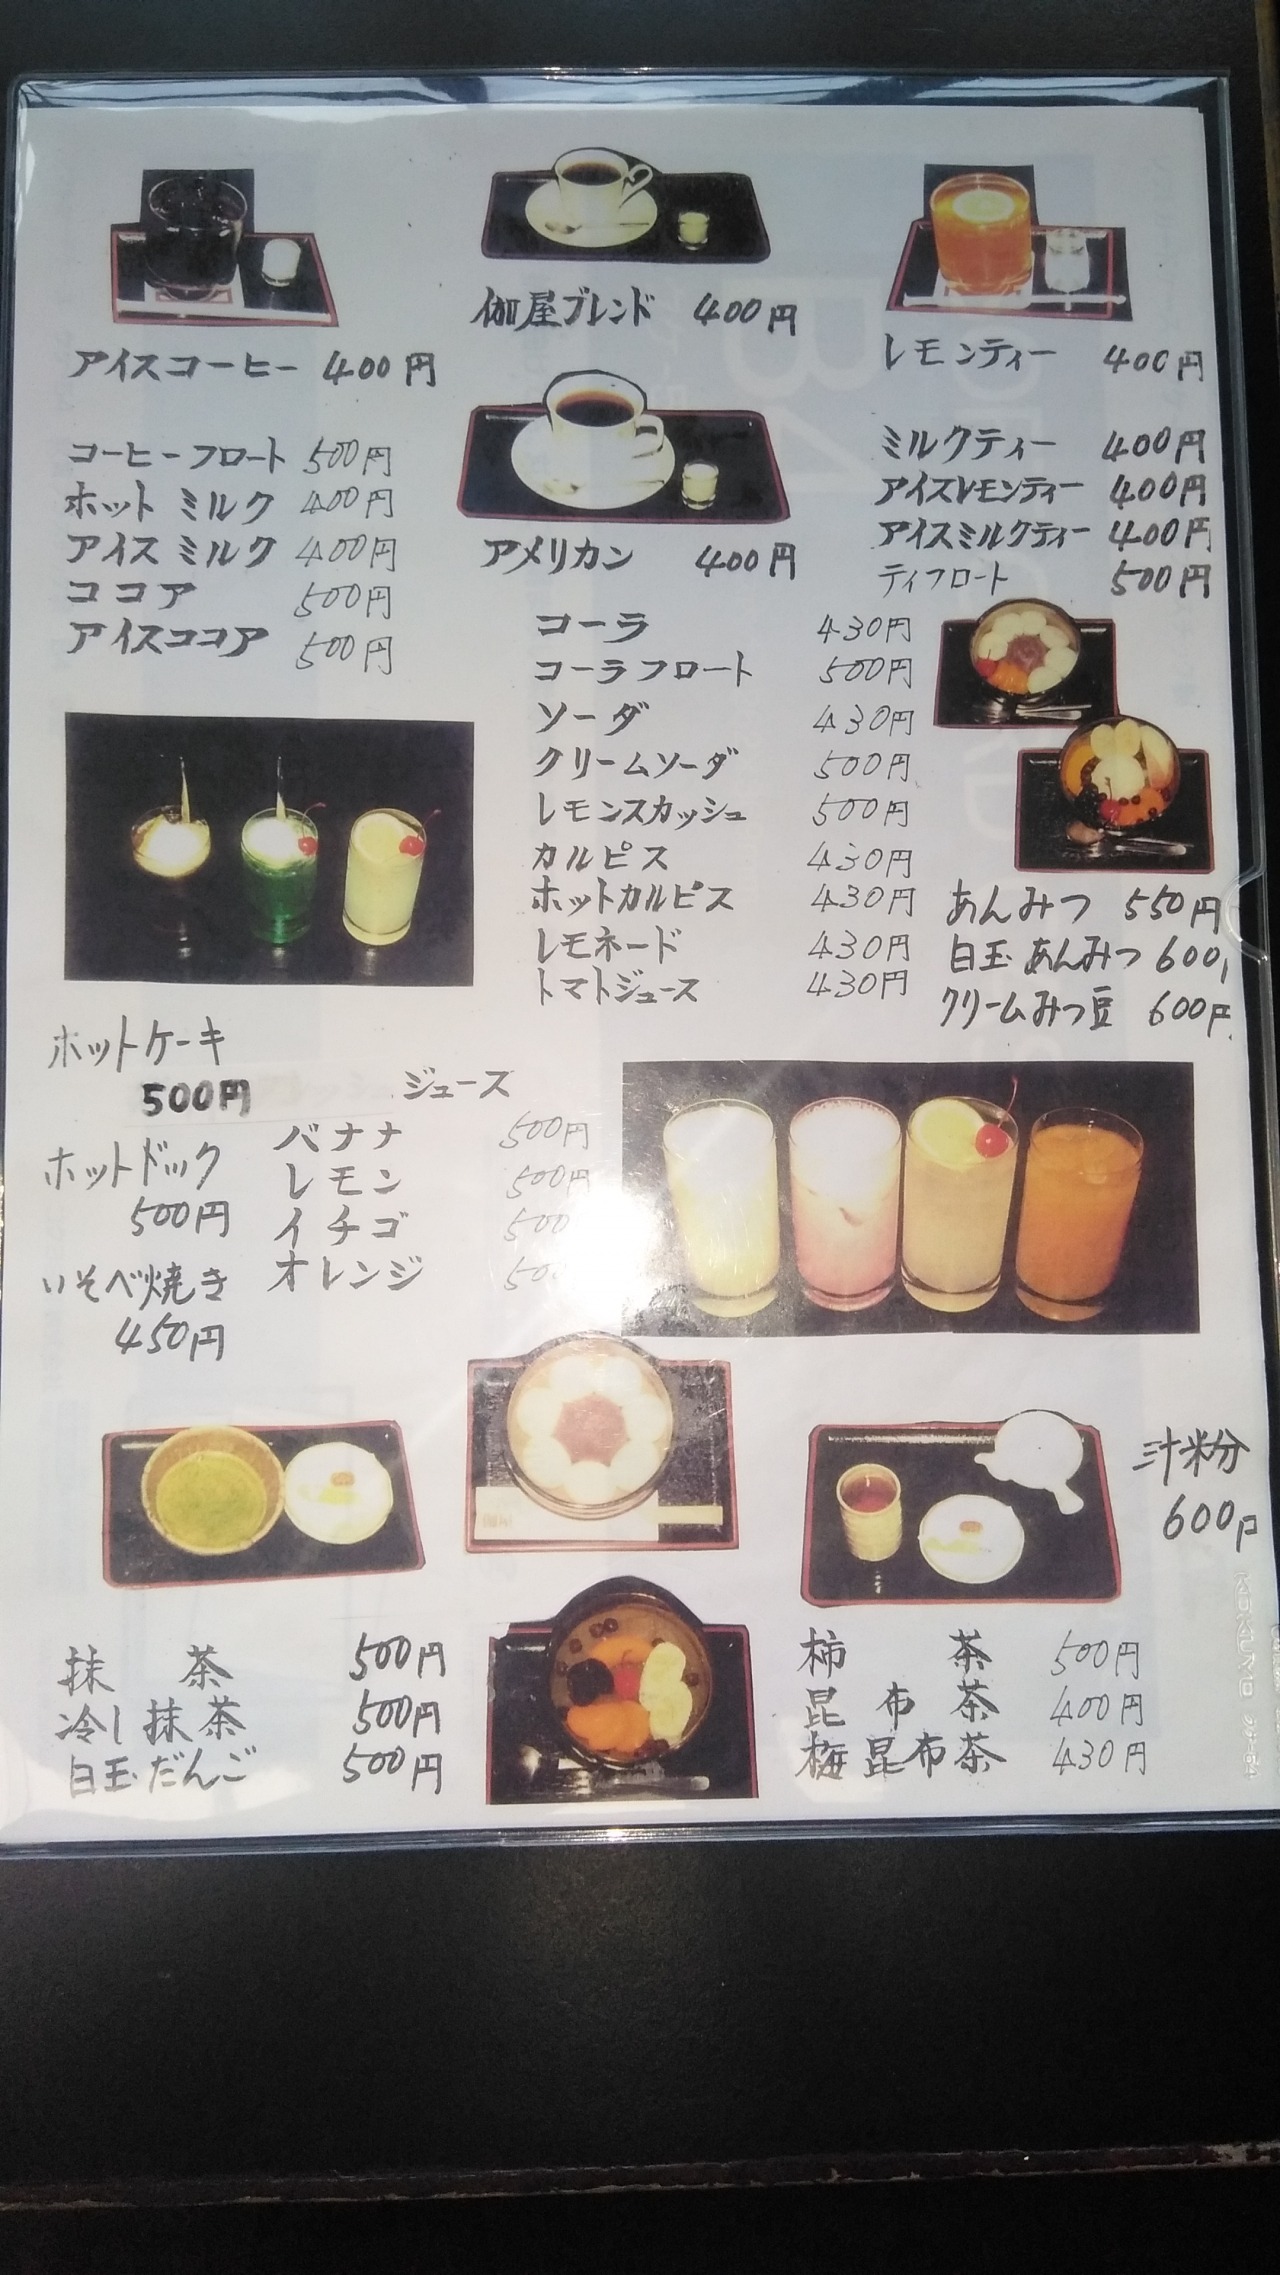 伽屋ブレンド 400円
アイスコーヒー 400円
レモンティー 400円
コーヒーフロート 500円
ホットミルク 400円
アイスミルク 400円
ココア 500円
アイスココア 500円
アメリカン 400円
ミルクティー 400円
アイスレモンティー 400円
アイスミルクティー 400円
ティフロート 500円
コーラ 430円
コーラフロート 500円
ソーダ 430円
クリームソーダ 500円
レモンスカッシュ 500円
カルピス 430円
ホットカルピス 430円
レモネード 430円
トマトジュース 430円
あんみつ 550円
白玉あんみつ 600
クリームみつ豆 600円
ホットケーキ
500円
ホットドック
500円
いそべ焼き
450円
ジュース
バナナ 500円
レモン 500円
イチゴ 500
オレンジ 500
汁粉
600円
抹茶 500円
冷し抹茶 500円
白玉だんご 500円
柿茶 500円
昆布茶 400円
梅昆布茶 430円